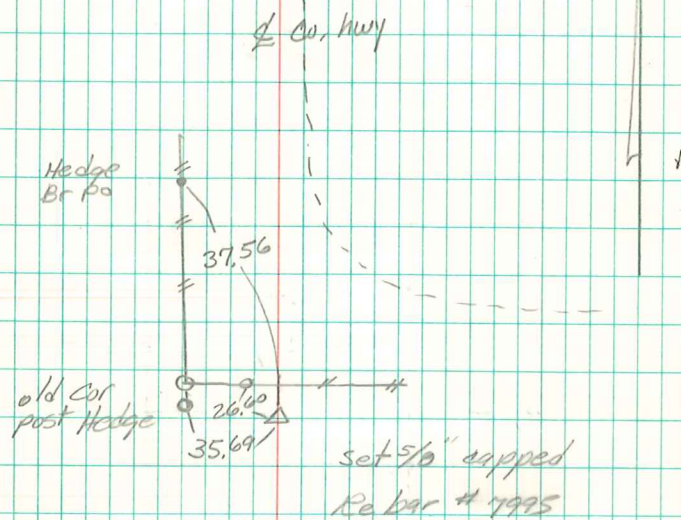 ℄ Co. hwy
Hedge
Br po
37.56
old Cor
post Hedge
26.60
35.69
set 5/8" capped
Re bar # 7995